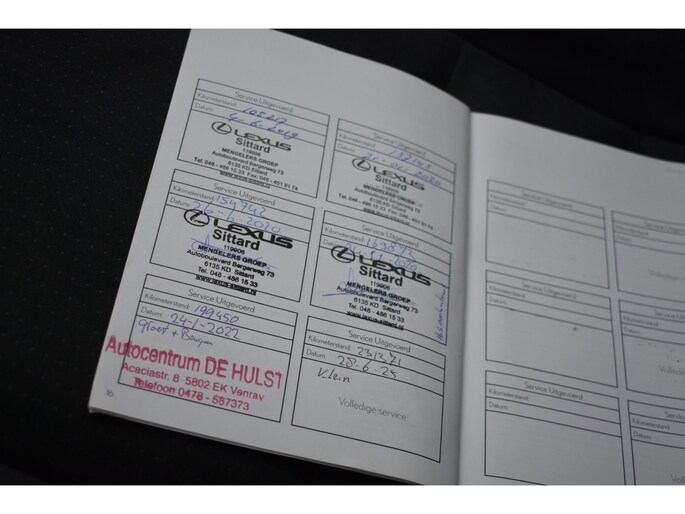 Service Uitgevoerd
Kilometerstand: 105217
Datum: 4-6-2019
LEXUS
Sittard
119906
MENGELERS GROEP
Autoboulevard Bergerweg 73
6135 KD Sittard
Tel. 046 - 486 15 33 Fax: 046 - 451 81 74
www.lexus-sittard.nl
Service Uitgevoerd
Kilometerstand:
Datum: 2020
LEXUS
Sittard
119906
MENGELERS GROEP
Autoboulevard Bergerweg 73
6135 KD Sittard
Tel. 046 - 486 15 33 Fax: 046 - 451 81 74
www.lexus-sittard.nl
Service Uitgevoerd
Kilometerstand: 154742
Datum: 26-6-2020
LEXUS
Sittard
119906
MENGELERS GROEP
Autoboulevard Bergerweg 73
6135 KD Sittard
Tel. 046 - 486 15 33
www.lexus-sittard.nl
Service Uitgevoerd
Kilometerstand:
Datum:
LEXUS
Sittard
119906
MENGELERS GROEP
Autoboulevard Bergerweg 73
6135 KD Sittard
Tel. 046 - 486 15 33
www.lexus-sittard.nl
Service Uitgevoerd
Kilometerstand: 199450
Datum: 24-1-2022
Groot + Bougies
Autocentrum DE HULST
Acaciastr. 8 5802 EK Venray
Telefoon 0478 - 587373
Service Uitgevoerd
Kilometerstand: 231371
Datum: 28-6-24
Klein
Volledige service
16
Service Uitgevoerd
Kilometerstand:
Datum:
Service Uitgevoerd
Kilometerstand:
Datum:
Service Uitgevoerd
Kilometerstand:
Datum: